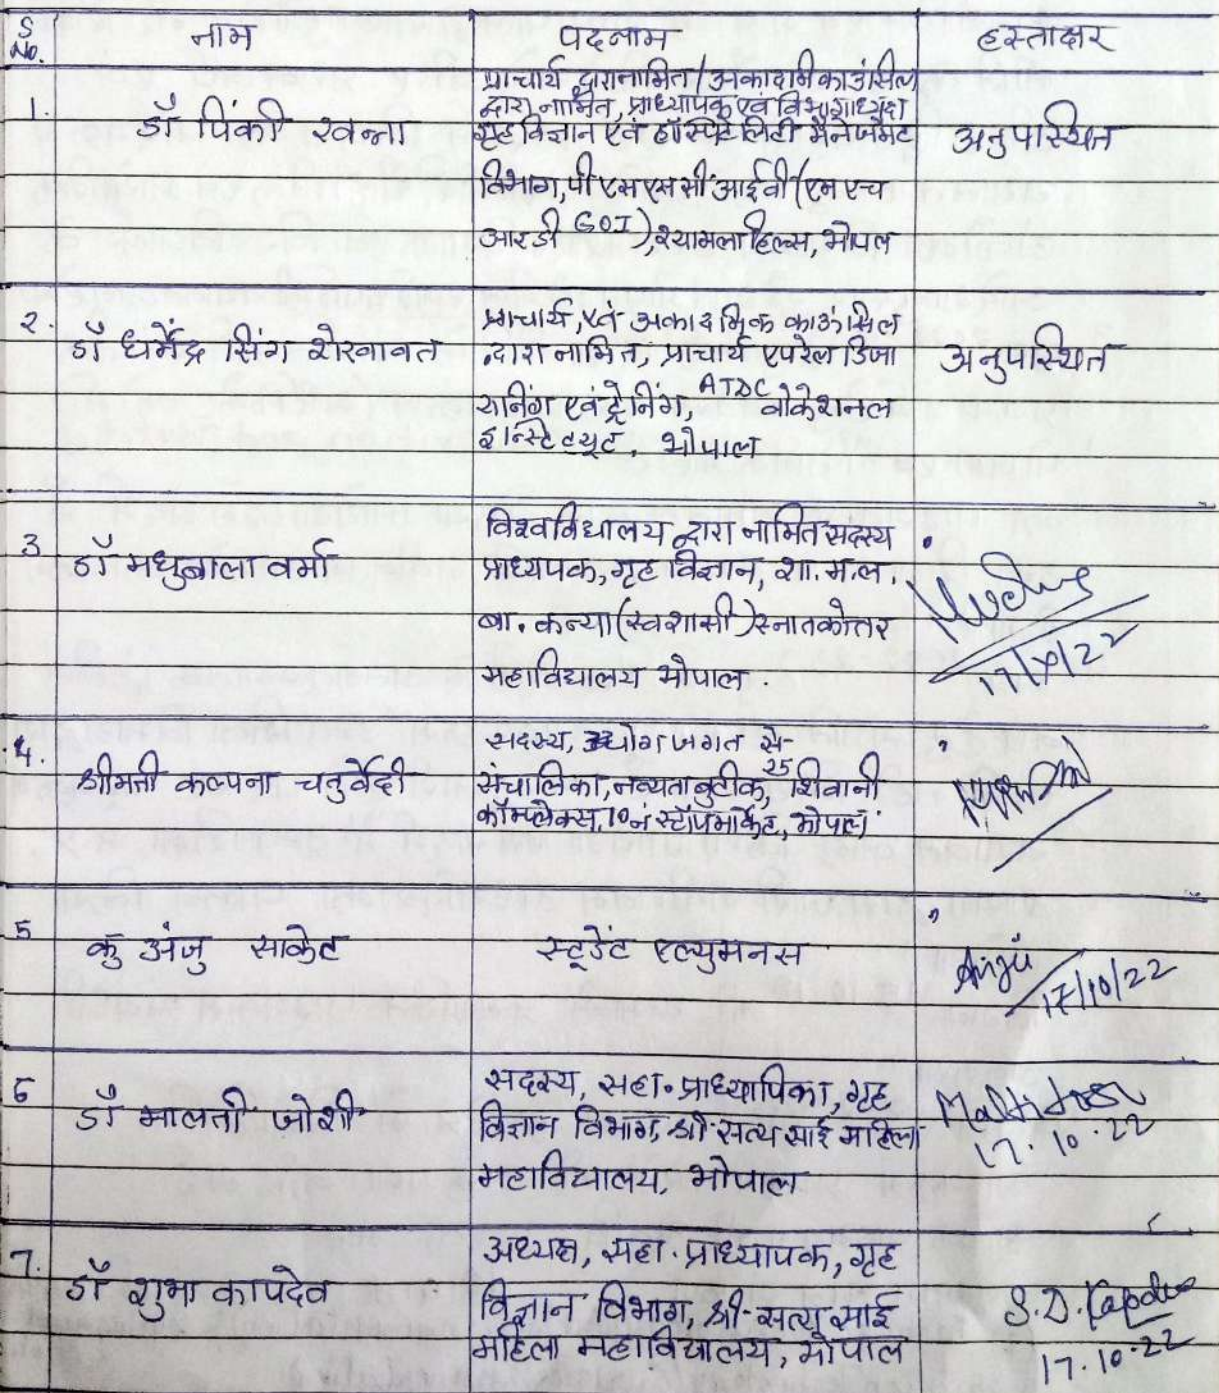 S No. नाम पदनाम हस्ताक्षर
1. डॉ पिंकी खन्ना
प्राचार्य द्वारा नामित/अकादमिक काउंसिल
द्वारा नामित, प्राध्यापक एवं विभागाध्यक्ष
गृह विज्ञान एवं हॉस्पिटेलिटी मैनेजमेंट
विभाग, पी एस एस सी आई वी (एम एच
आर डी GOI), श्यामला हिल्स, भोपाल
अनुपस्थित
2. डॉ धर्मेंद्र सिंग शेखावत
प्राचार्य, एवं अकादमिक काऊंसिल
द्वारा नामित, प्राचार्य एपरेल डिजा
यनिंग एवं ट्रेनिंग, ATDC वोकेशनल
इन्स्टिट्यूट, भोपाल
अनुपस्थित
3 डॉ मधुबाला वर्मा
विश्वविद्यालय द्वारा नामित सदस्य
प्राध्यपक, गृह विज्ञान, शा. म. ल.
बा. कन्या (स्वशासी) स्नातकोत्तर
महाविद्यालय भोपाल.
17/X/22
4. श्रीमती कल्पना चतुर्वेदी
सदस्य, उद्योग जगत से-
संचालिका, नव्यता बुटीक, 25 शिवानी
कॉम्प्लेक्स, 10 नं स्टॉप मार्केट, भोपाल
5 कु अंजु साकेत
स्टूडेंट एल्युमनस
Anju
17/10/22
6 डॉ मालती जोशी
सदस्य, सहा. प्राध्यापिका, गृह
विज्ञान विभाग, श्री सत्य साई महिला
महाविद्यालय, भोपाल
Malti Joshi
17.10.22
7. डॉ शुभा कापदेव
अध्यक्ष, सहा. प्राध्यापक, गृह
विज्ञान विभाग, श्री सत्य साई
महिला महाविद्यालय, भोपाल
S.D. Kapdeo
17.10.22